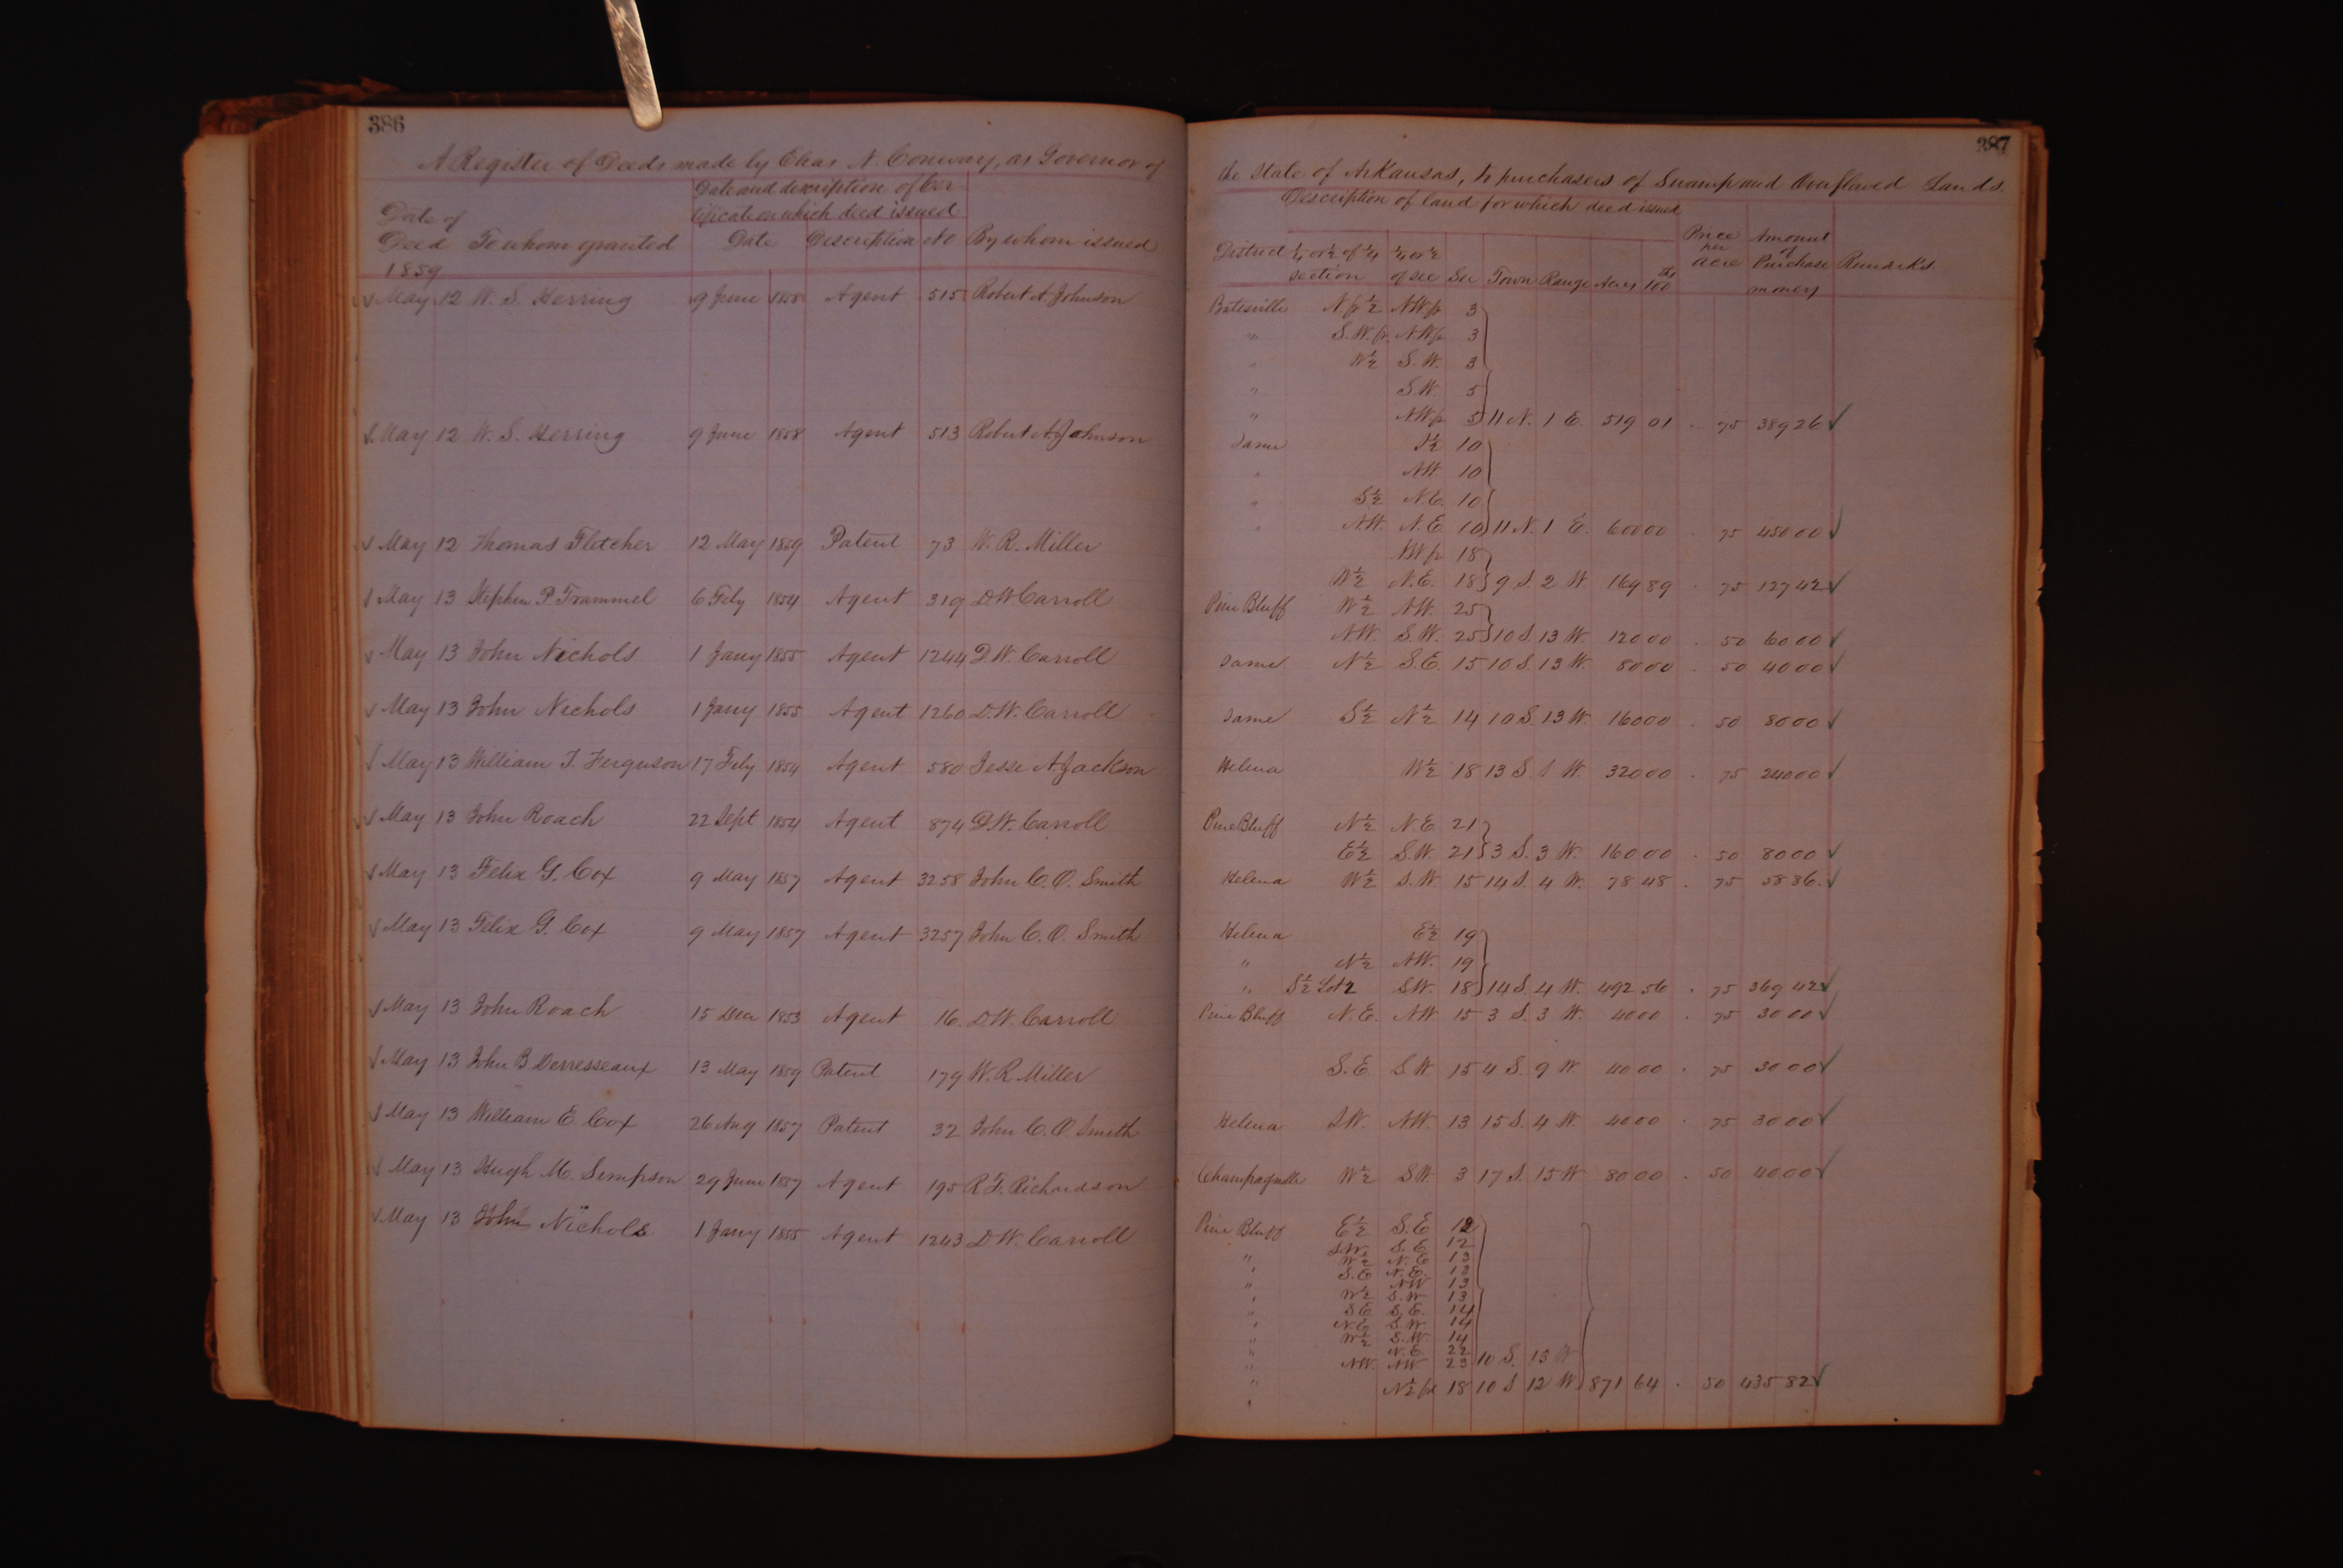 386
A Register of Deeds made by Elias N. Conway, as Governor of
Date and description of Cer-
tificate on which deed issued
Date of
Deed To whom granted Date Description No By whom issued
1859
May 12 W. S. Herring 9 June 1858 Agent 515 Robert A Johnson
May 12 W. S. Herring 9 June 1858 Agent 513 Robert A Johnson
May 12 Thomas Fletcher 12 May 1859 Patent 73 W. R. Miller
May 13 Stephen P. Trammel 6 Feby 1854 Agent 319 D.W. Carroll
May 13 John Nichols 1 Jany 1855 Agent 1244 D.W. Carroll
May 13 John Nichols 1 Jany 1855 Agent 1260 D.W. Carroll
May 13 William T. Ferguson 17 Feby 1854 Agent 580 Jesse A Jackson
May 13 John Roach 22 Sept 1854 Agent 874 D.W. Carroll
May 13 Felix G. Cox 9 May 1857 Agent 3258 John C. O. Smith
May 13 Felix G. Cox 9 May 1857 Agent 3257 John C. O. Smith
May 13 John Roach 15 Decr 1853 Agent 16. D.W. Carroll
May 13 John B Derresseaux 13 May 1859 Patent 179 W. R Miller
May 13 William E. Cox 26 Aug 1857 Patent 32 John C. O. Smith
May 13 Hugh M. Simpson 29 June 1857 Agent 195 R. F. Richardson
May 13 John Nichols 1 Jany 1855 Agent 1243 D.W. Carroll
387
the State of Arkansas, to purchasers of Swamp and Overflowed Lands.
Description of land for which deed issued
District ¼ or ½ of ¼ section ¼ or ½ of sec Sec Town Range Acres ths 100 Price per acre Amount of Purchase money Remarks.
Batesville N.p ½ NWp 3
" S.W.p. NWp 3
" W½ S.W. 3
" S.W. 5
" NWp 5 11 N. 1 E. 519 01 . 75 389 26 ✓
Same S½ 10
" NW. 10
" S½ N.E. 10
" NW. N.E 10 11 N. 1 E. 600 00 . 75 450 00 ✓
NWp 18
W½ N.E. 18 9 S. 2 W 169 89 . 75 127 42 ✓
Pine Bluff W½ NW. 25
NW. S.W. 25 10 S. 13 W. 120 00 . 50 60 00 ✓
Same N½ S.E. 15 10 S. 13 W. 80 00 . 50 40 00 ✓
Same S½ N½ 14 10 S. 13 W. 160 00 . 50 80 00 ✓
Helena W½ 18 13 S. 1 W. 320 00 . 75 240 00 ✓
Pine Bluff N½ N.E 21
E½ S.W. 21 3 S. 3 W. 160 00 . 50 80 00 ✓
Helena W½ S.W. 15 14 S. 4 W. 78 48 . 75 58 86. ✓
Helena E½ 19
" N½ NW. 19
" S½ Lot 2 SW. 18 14 S. 4 W. 492 56 . 75 369 42 ✓
Pine Bluff N.E. NW 15 3 S. 3 W. 40 00 . 75 30 00 ✓
S.E. S.W 15 4 S. 9 W 40 00 . 75 30 00 ✓
Helena S.W. NW. 13 15 S. 4 W. 40 00 . 75 30 00 ✓
Champagnolle W½ SW 3 17 S. 15 W 80 00 . 50 40 00 ✓
Pine Bluff E½ S.E 12
SW. S.E. 12
" W½ N.E 13
" S.E N.E. 13
" NW 13
" W½ S.W 13
" SE S.E. 14
" N.E S.W. 14
" W½ S.W 14
" N.E. 22
" NW. NW 23 10 S. 13 W
" N½ p 18 10 S 12 W. 871 64 . 50 435 82 ✓